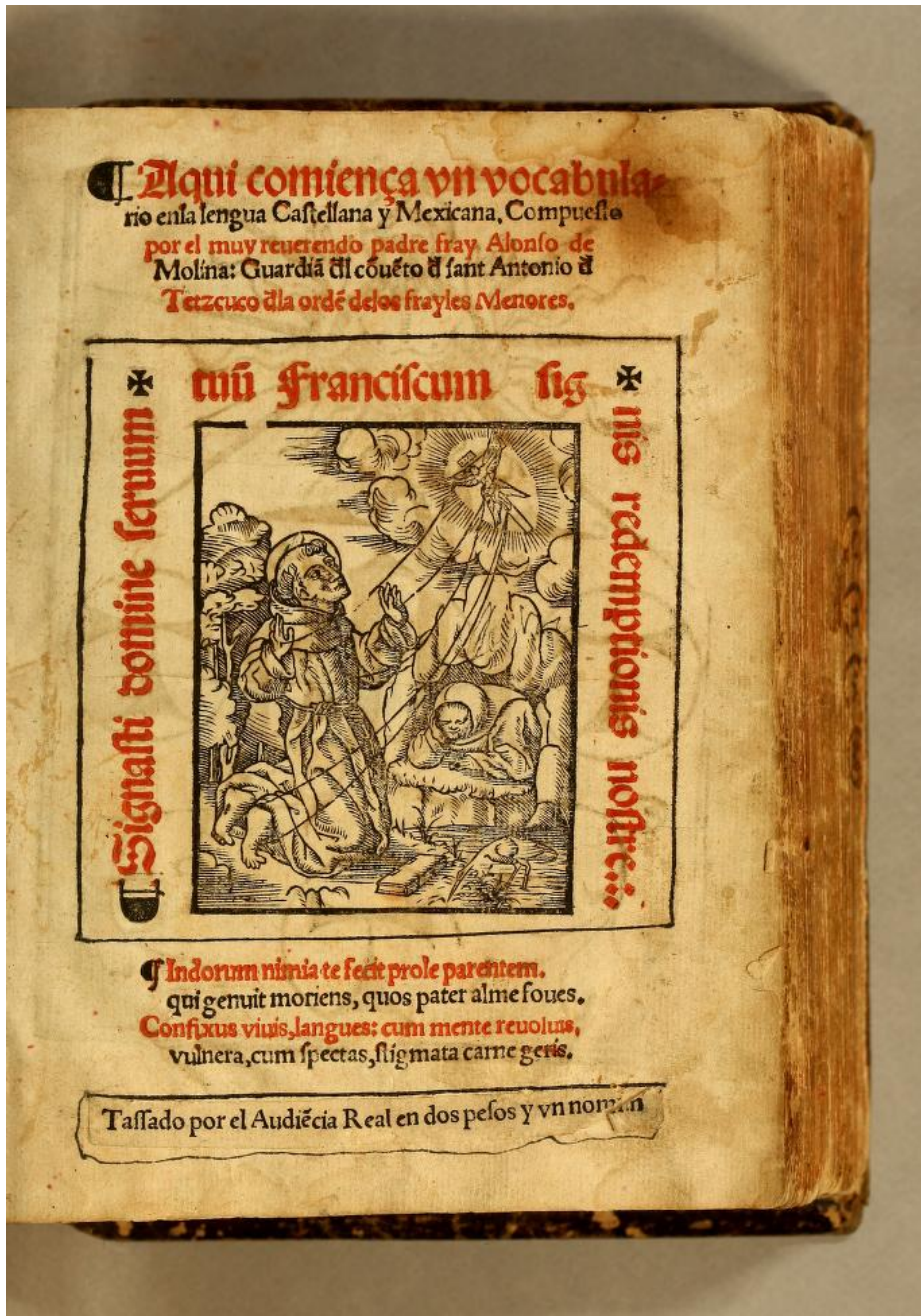 ¶ Aqui comiença vn vocabula-
rio enla lengua Castellana y Mexicana. Compuesto
por el muy reuerendo padre fray Alonso de
Molina: Guardiã đl cõuẽto đ sant Antonio đ
Tetzcuco đla ordẽ delos frayles Menores.
¶ Signasti domine seruum
✠ tuũ Franciscum sig ✠
nis redemptionis nostre
¶ Indorum nimia te fecit prole parentem.
qui genuit moriens, quos pater alme foues.
Confixus viuis, langues: cum mente reuoluis,
vulnera, cum spectas, stigmata carne geris.
Tassado por el Audiẽcia Real en dos pesos y vn